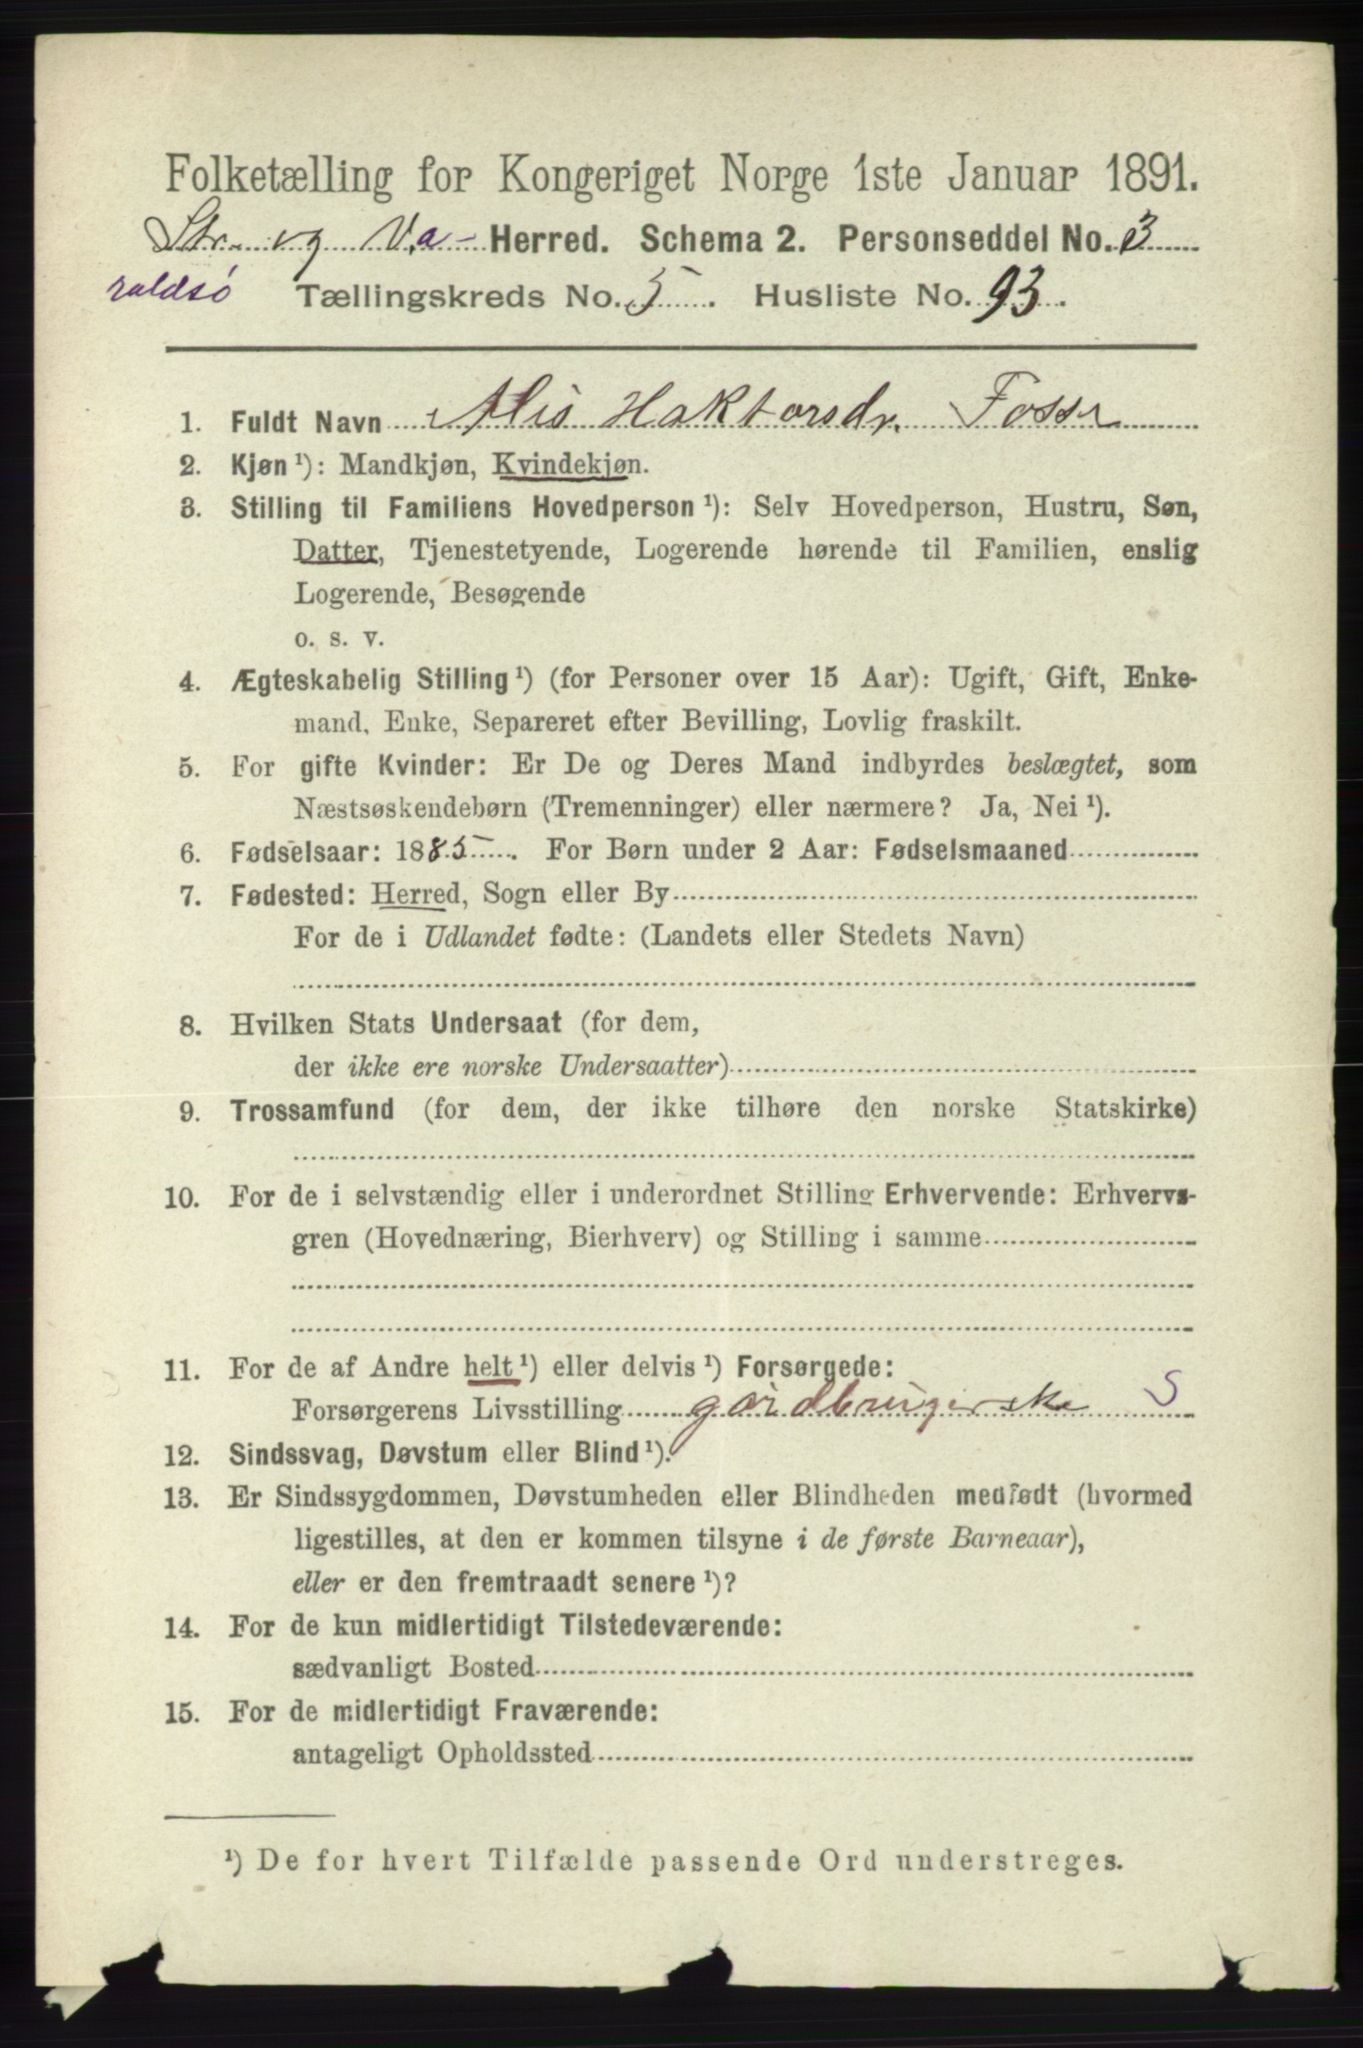 Folketælling for Kongeriget Norge 1ste Januar 1891.
Str. og Va- Herred. Schema 2. Personseddel No. 3
raldsö Tællingskreds No. 5. Husliste No. 93.
1. Fuldt Navn Alis Haktorsdr. Fosse
2. Kjøn ¹): Mandkjøn, Kvindekjøn.
3. Stilling til Familiens Hovedperson ¹): Selv Hovedperson, Hustru, Søn,
Datter, Tjenestetyende, Logerende hørende til Familien, enslig
Logerende, Besøgende
o. s. v.
4. Ægteskabelig Stilling ¹) (for Personer over 15 Aar): Ugift, Gift, Enke-
mand, Enke, Separeret efter Bevilling, Lovlig fraskilt.
5. For gifte Kvinder: Er De og Deres Mand indbyrdes beslægtet, som
Næstsøskendebørn (Tremenninger) eller nærmere? Ja, Nei ¹).
6. Fødselsaar: 1885. For Børn under 2 Aar: Fødselsmaaned
7. Fødested: Herred, Sogn eller By
For de i Udlandet fødte: (Landets eller Stedets Navn)
8. Hvilken Stats Undersaat (for dem,
der ikke ere norske Undersaatter)
9. Trossamfund (for dem, der ikke tilhøre den norske Statskirke)
10. For de i selvstændig eller i underordnet Stilling Erhvervende: Erhvervs-
gren (Hovednæring, Bierhverv) og Stilling i samme
11. For de af Andre helt ¹) eller delvis ¹) Forsørgede:
Forsørgerens Livsstilling gårdbrugerske S
12. Sindssvag, Døvstum eller Blind ¹).
13. Er Sindssygdommen, Døvstumheden eller Blindheden medfødt (hvormed
ligestilles, at den er kommen tilsyne i de første Barneaar),
eller er den fremtraadt senere ¹)?
14. For de kun midlertidigt Tilstedeværende:
sædvanligt Bosted
15. For de midlertidigt Fraværende:
antageligt Opholdssted
¹) De for hvert Tilfælde passende Ord understreges.